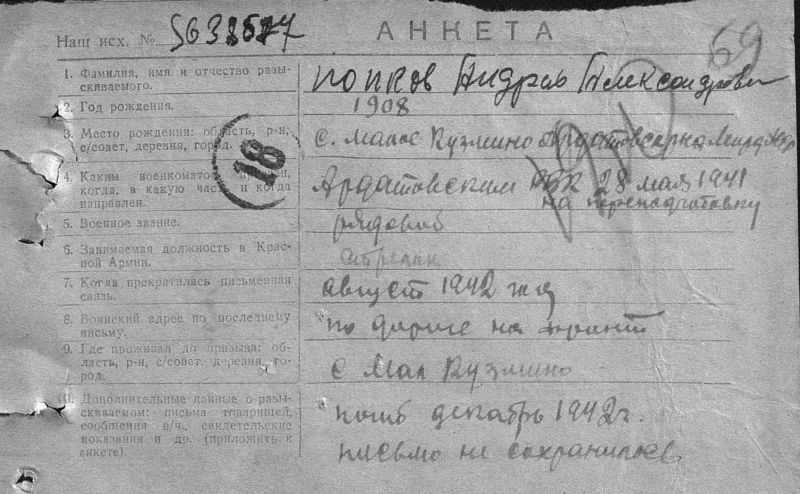 АНКЕТА
69
Наш исх. №
1. Фамилия, имя и отчество разы-
скиваемого.
Попков Андрей Александрович
2. Год рождения.
1908
3. Место рождения: область, р-н,
с/совет, деревня, город.
с. Малое Кузмино
18
4. Каким военкоматом призван,
когда, в какую часть и когда
направлен.
Ардатовским РВК 28 мая 1941
на переподготовку
5. Военное звание.
рядовой
6. Занимаемая должность в Крас-
ной Армии.
стрелок
7. Когда прекратилась письменная
связь.
август 1942 года
8. Воинский адрес по последнему
письму.
по дороге на фронт
9. Где проживал до призыва: об-
ласть, р-н, с/совет, деревня, го-
род.
с Мал Кузмино
10. Дополнительные данные о разы-
скиваемом: письма товарищей,
сообщения в/ч., свидетельские
показания и др. (приложить к
анкете)
погиб декабрь 1942 г.
письмо не сохранилось